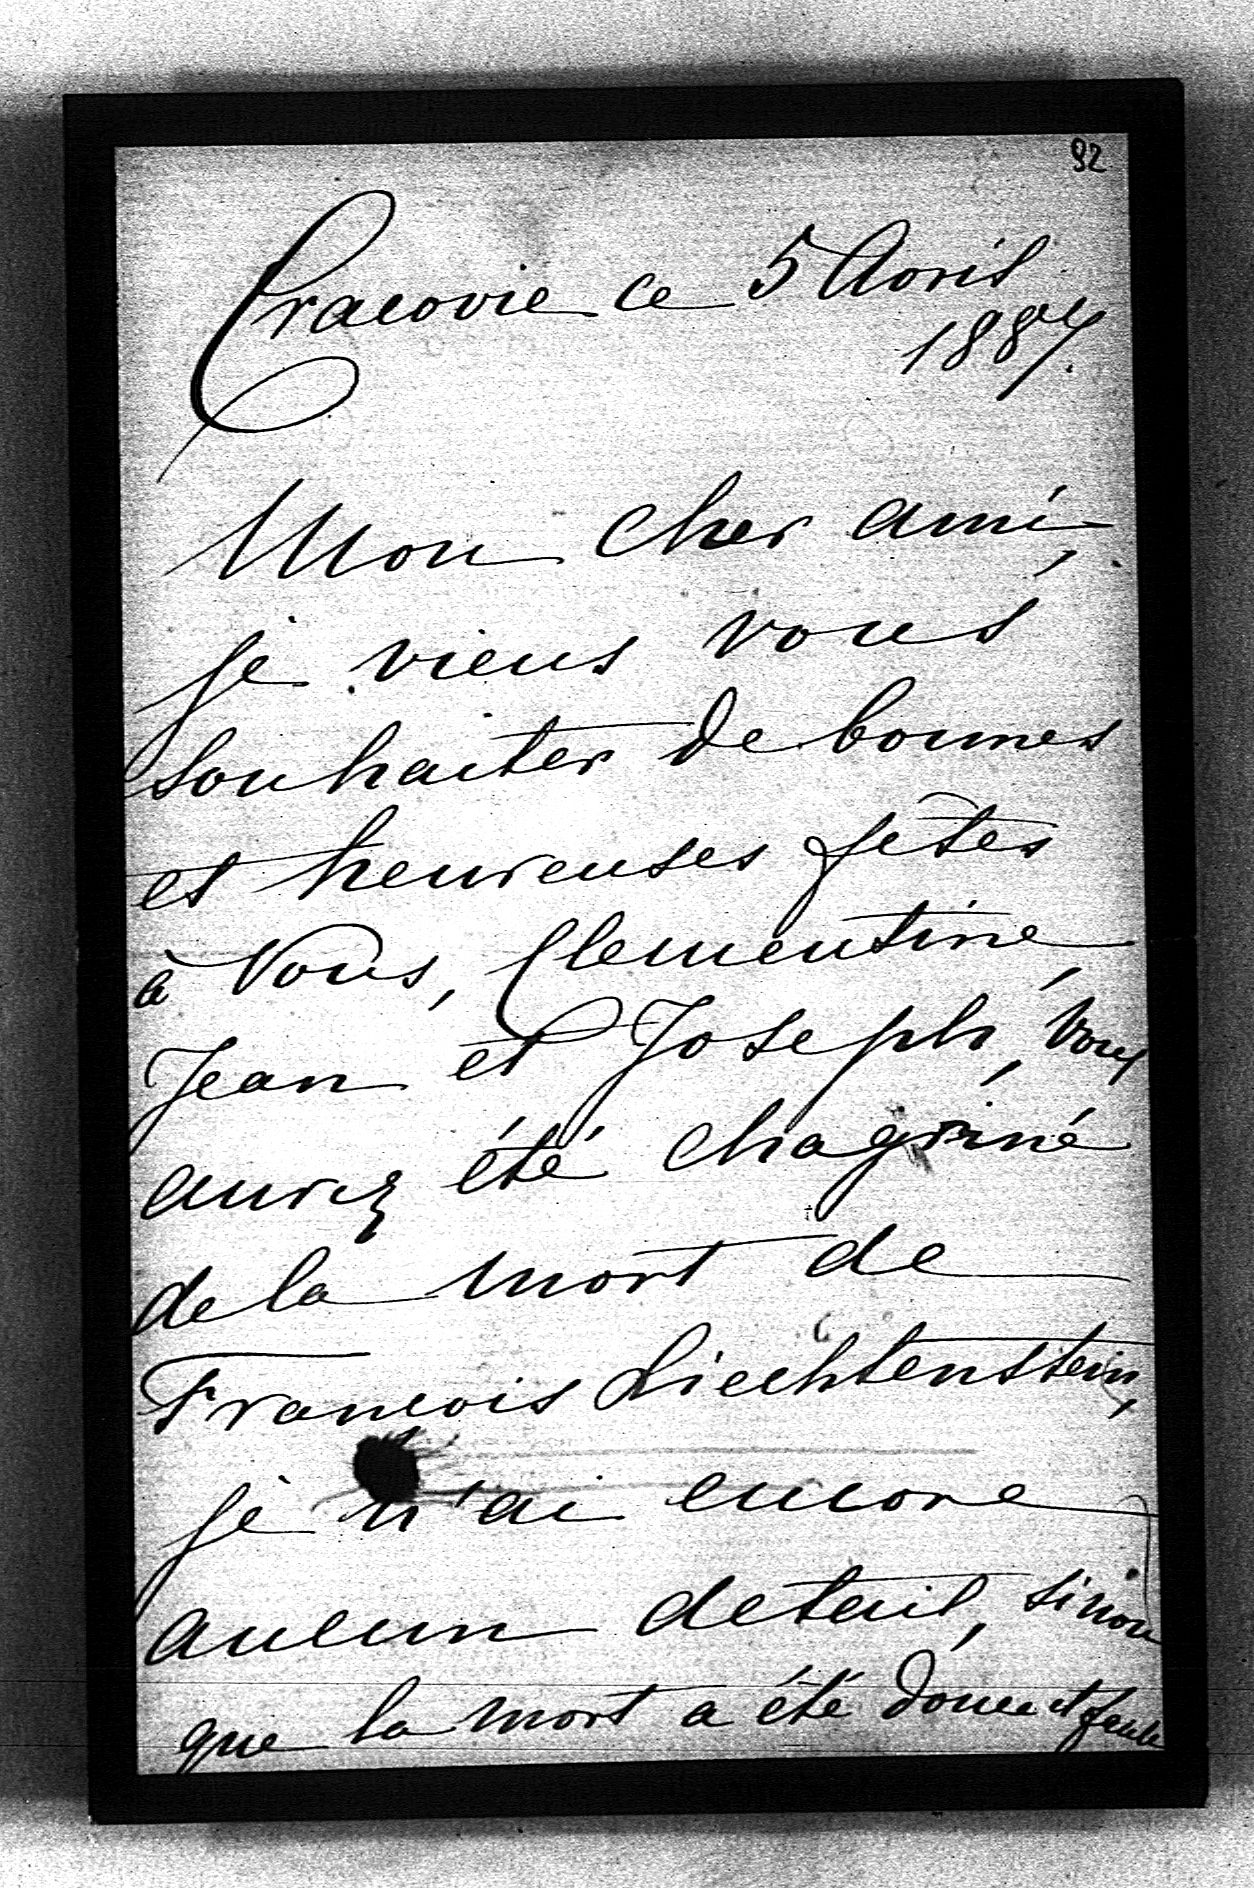 92
Cracovie ce 5 Avril
1887.
Mon cher ami,
je viens vous
souhaiter de bonnes
et heureuses fêtes
à Vous, Clementine,
Jean et Joseph, Vous
aurez été chagriné
de la mort de
François Liechtenstein,
je n'ai encore
aucun detail, sinon
que la mort a été douce et